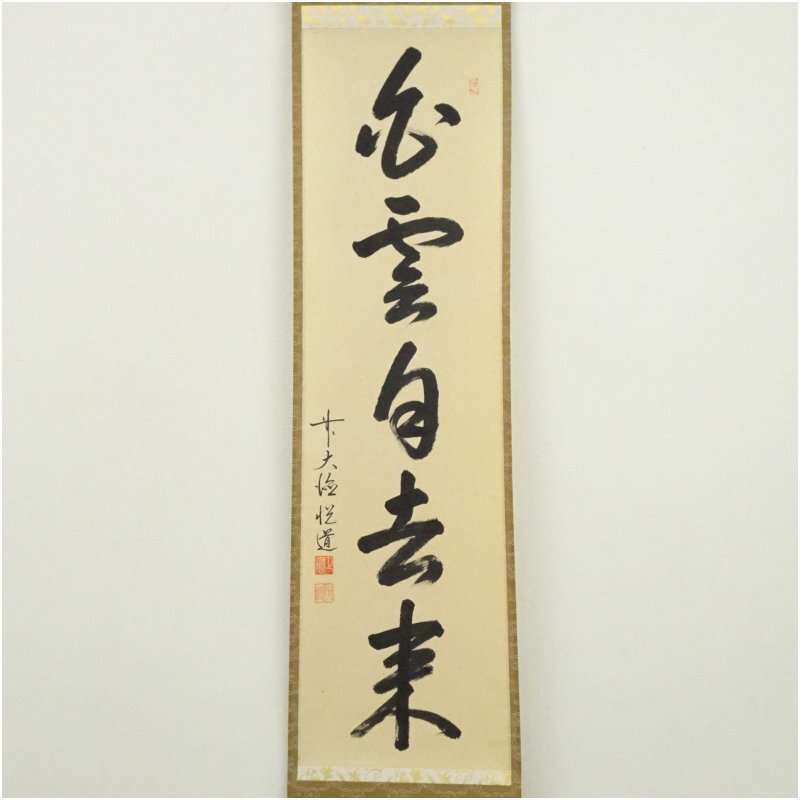 白雲自去来
大徳悦道